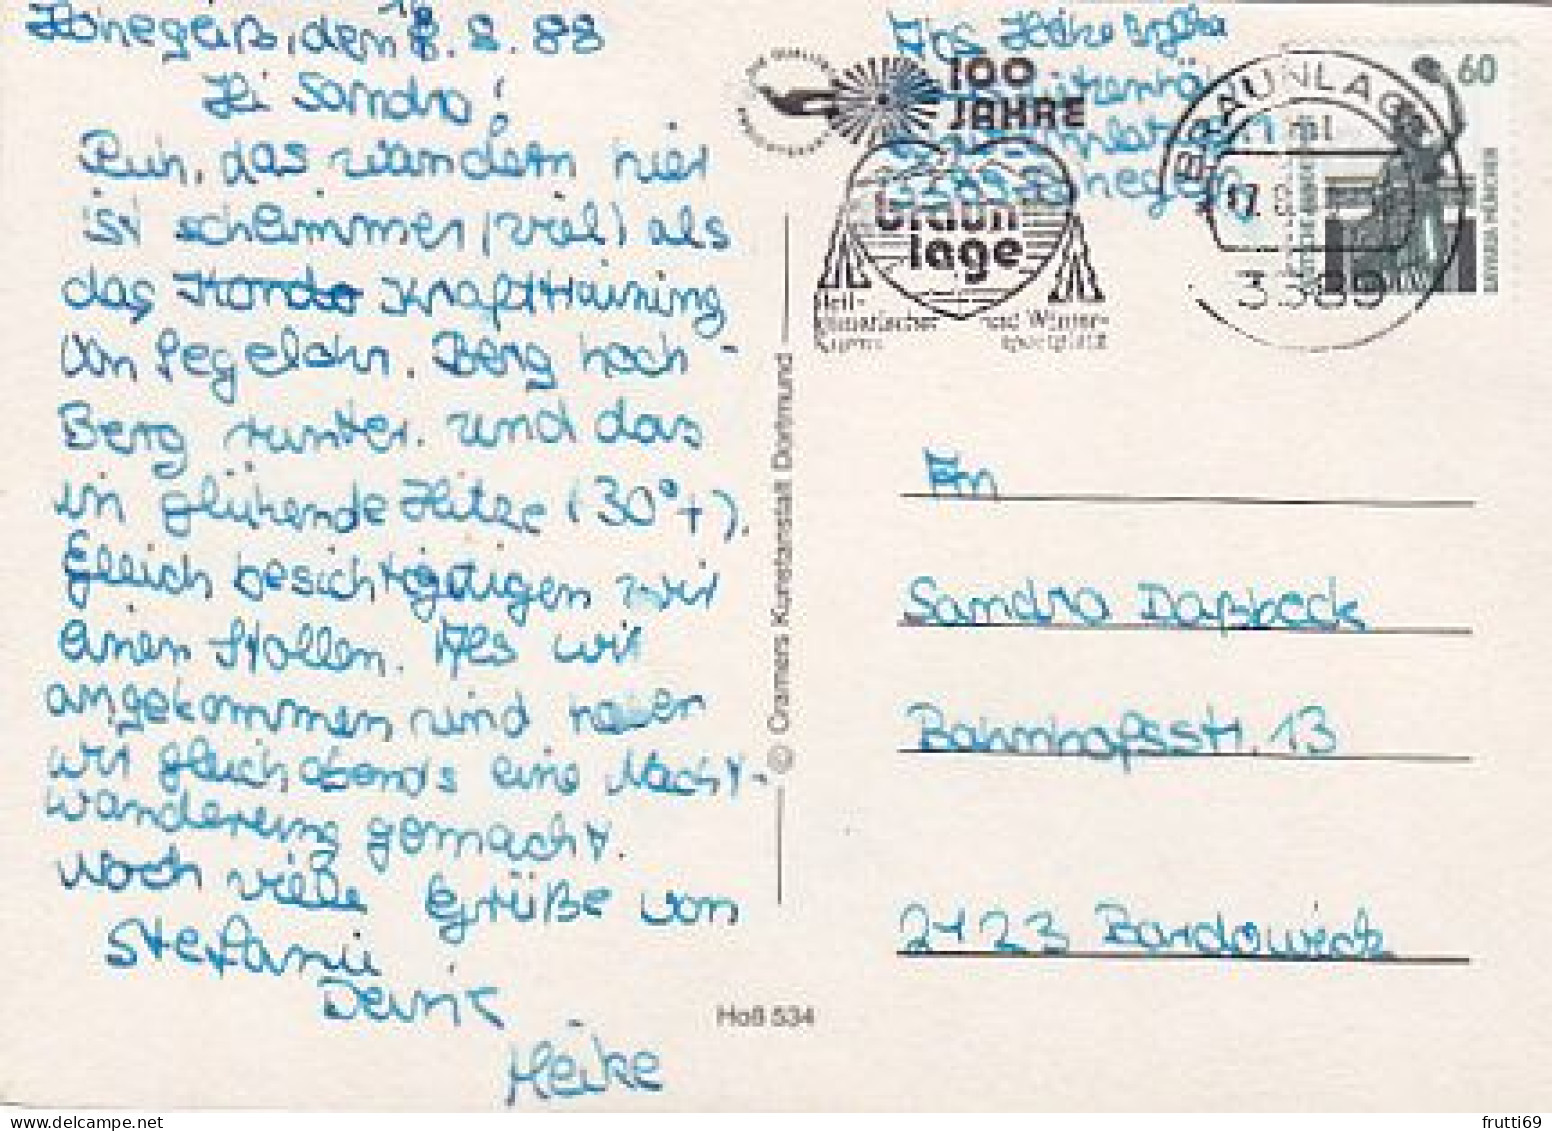 Hohegeiß, den 18. 8. 88
Hi Sandra!
Puh, das wandern hier
ist schlimmer (viel) als
das Krafttraining
von Segelohr. Berg hoch -
Berg runter. und das
in glühende Hitze (30°+).
Gleich besichtigen wir
einen Stollen. Als wir
angekommen sind haben
wir gleich abends eine Nacht-
wanderung gemacht.
Noch viele Grüße von
Stefanie
Heike
Abs Heike
3389 Hohegeiß
100
JAHRE
braun
lage
Heil-
klimatischer
Kurort
und Winter-
sportplatz
BRAUNLAGE 1
17. 8.
3389
60
© Cramers Kunstanstalt Dortmund
An
Sandra Daßbeck
Bahnhofsstr. 13
2123 Bardowick
Hoß 534
frutti69